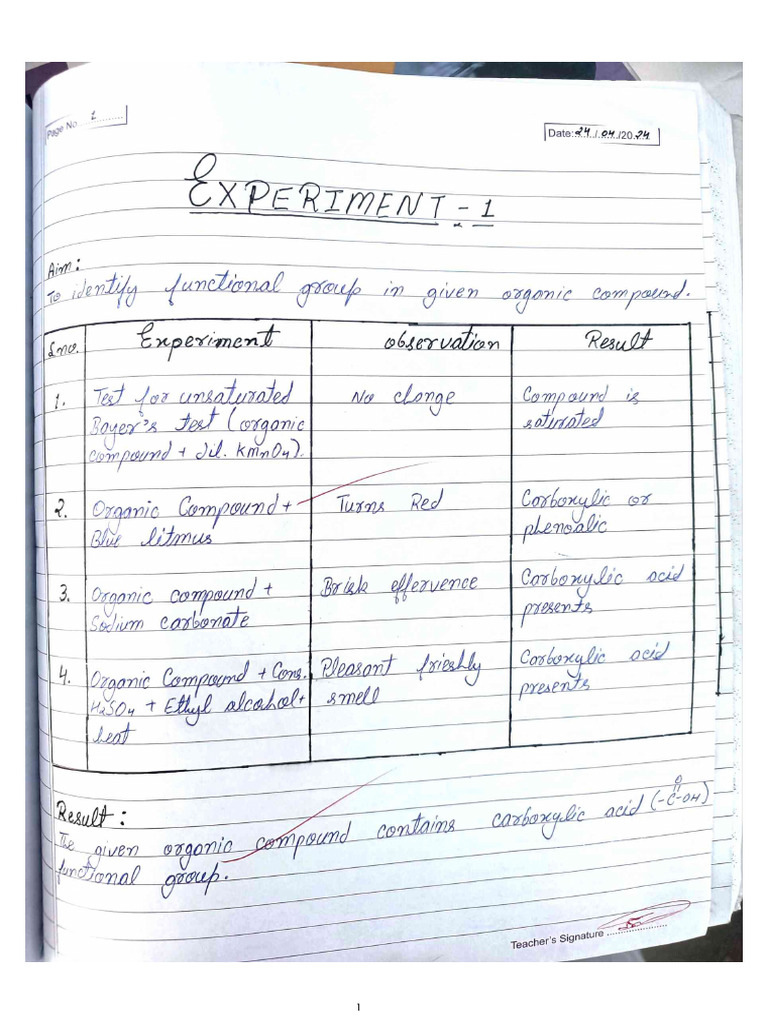 Page No. 1
Date: 24/04/2024
EXPERIMENT - 1
Aim:
To identify functional group in given organic compound.
Sno. Experiment observation Result
1. Test for unsaturated No change Compound is
Bayer's test (organic saturated
compound + dil. KMnO4).
2. Organic Compound + Turns Red Carboxylic or
Blue litmus phenoalic
3. Organic compound + Brisk effervence Carboxylic acid
Sodium carbonate presents
4. Organic Compound + Cons. Pleasant frieshly Carboxylic acid
H2SO4 + Ethyl alcohol + smell presents
heat
Result:
The given organic compound contains carboxylic acid (-C-OH)
O
functional group.
Teacher's Signature
1